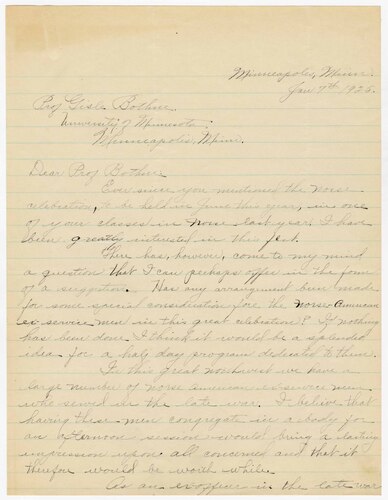 Minneapolis, Minn.
Jan 7th 1925.
Prof Gisle Bothne.
University of Minnesota.
Minneapolis, Minn.
Dear Prof Bothne
Ever since you mentioned the norse
celebration, to be held in June this year, in one
of your classes in norse last year, I have
been greatly interested in this fest.
There has, however, come to my mind
a question that I can perhaps offer in the form
of a suggestion. Has any arrangement been made
for some special consideration for the norse-american
ex-service men in this great celebration? If nothing
has been done I think it would be a splendid
idea for a half day program dedicated to them.
In this great northwest we have a
large number of norse american ex-service men
who served in the late war. I believe that
having these men congregate in a body for
an afternoon session would bring a lasting
impression upon all concerned and that it
therefore would be worth while.
As an in the late war